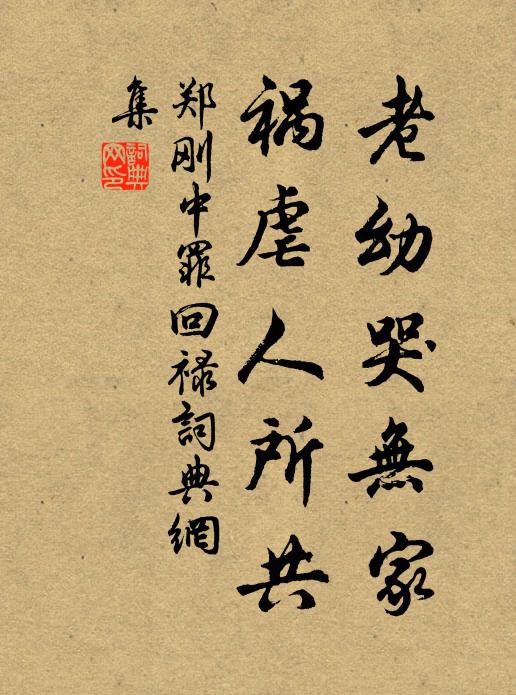 老幼哭無家
禍虐人所共
郑刚中罪回禄詞典網
集
詞典
网印